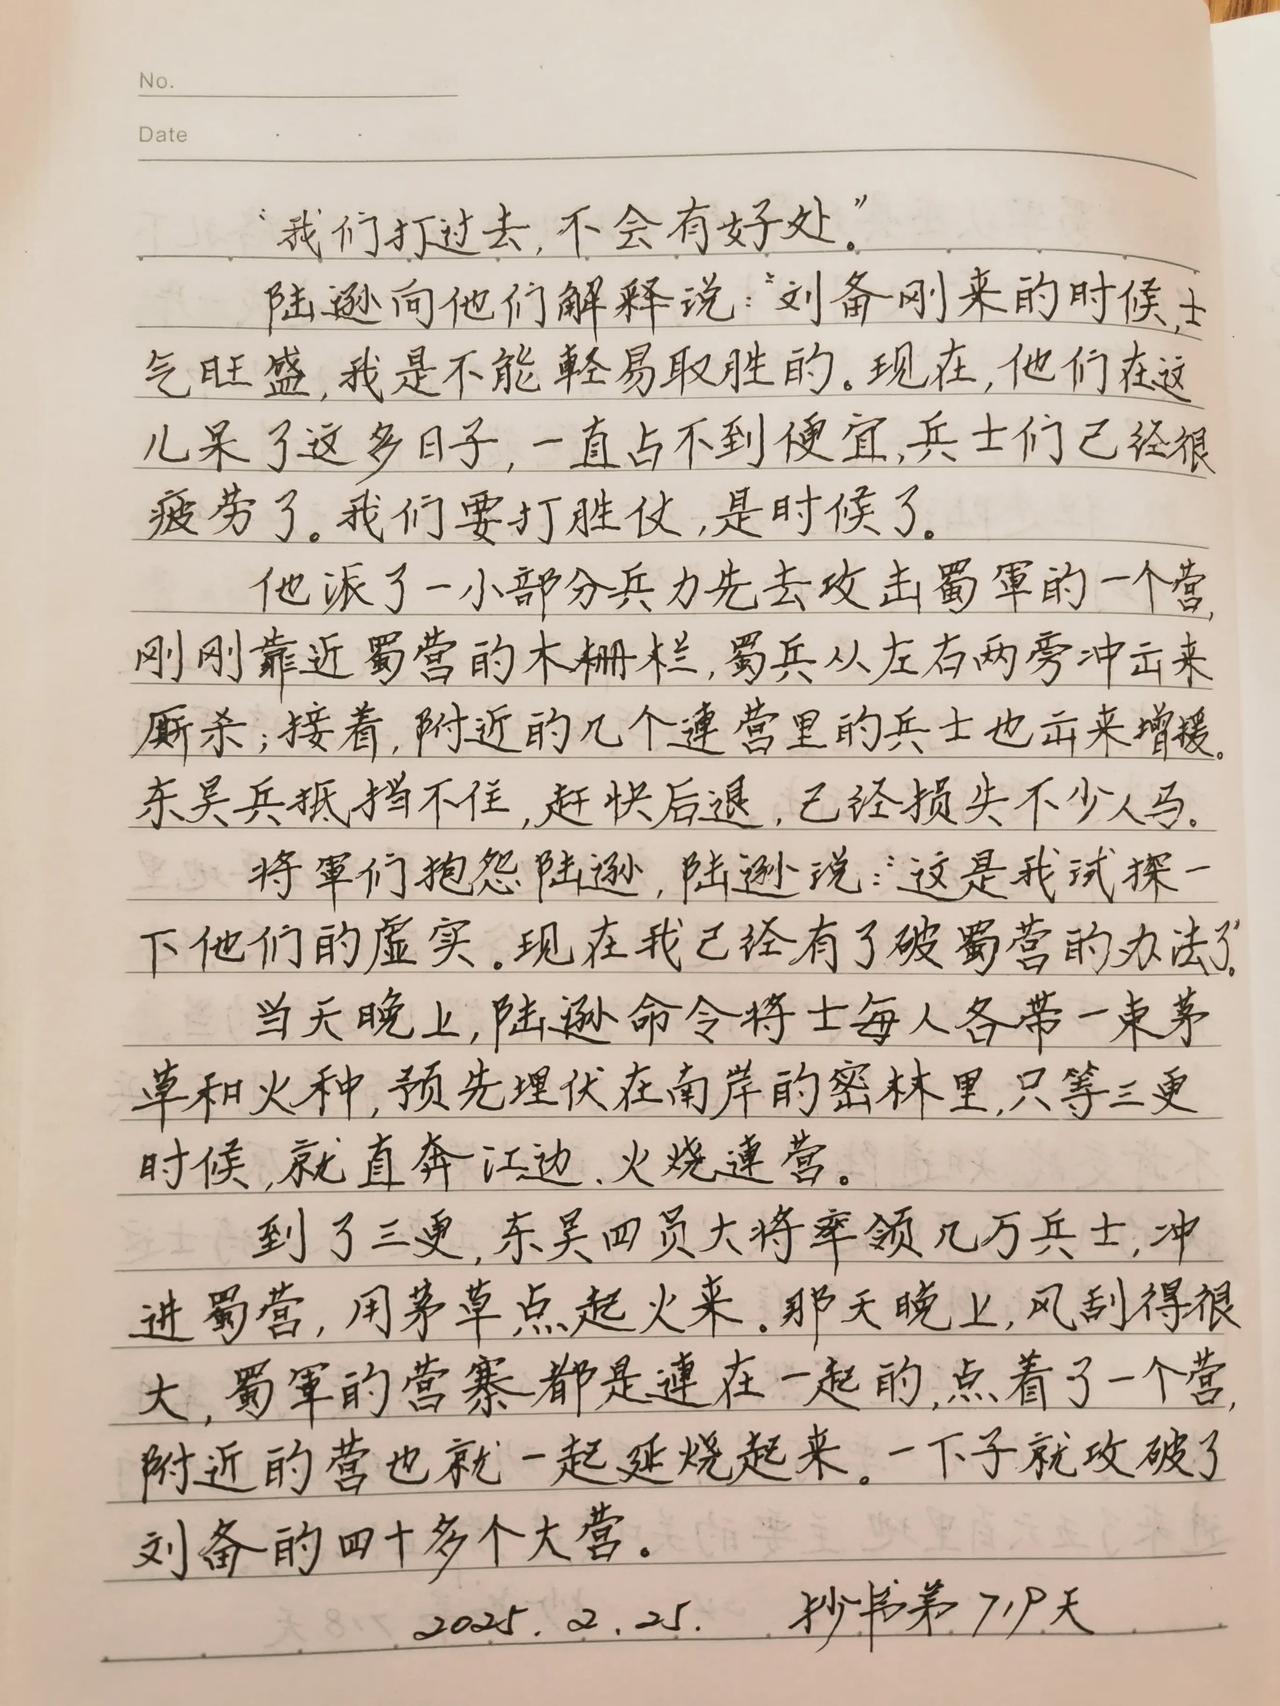 No.
Date
“我们打过去，不会有好处。”
陆逊向他们解释说：“刘备刚来的时候，士
气旺盛，我是不能輕易取胜的。现在，他们在这
儿呆了这多日子，一直占不到便宜，兵士们已经很
疲劳了。我们要打胜仗，是时候了。
他派了一小部分兵力先去攻击蜀軍的一个营，
刚刚靠近蜀营的木栅栏，蜀兵从左右两旁冲出来
厮杀；接着，附近的几个連营里的兵士也出来增援。
东吴兵抵挡不住，赶快后退，已经损失不少人马。
将軍们抱怨陆逊，陆逊说：“这是我试探一
下他们的虚实。现在我已经有了破蜀营的办法了。”
当天晚上，陆逊命令将士每人各带一束茅
草和火种，预先埋伏在南岸的密林里，只等三更
时候，就直奔江边、火烧連营。
到了三更，东吴四员大将率领几万兵士，冲
进蜀营，用茅草点起火来。那天晚上，风刮得很
大，蜀軍的营寨都是連在一起的，点着了一个营，
附近的营也就一起延烧起来。一下子就攻破了
刘备的四十多个大营。
2025.2.25. 抄书第719天